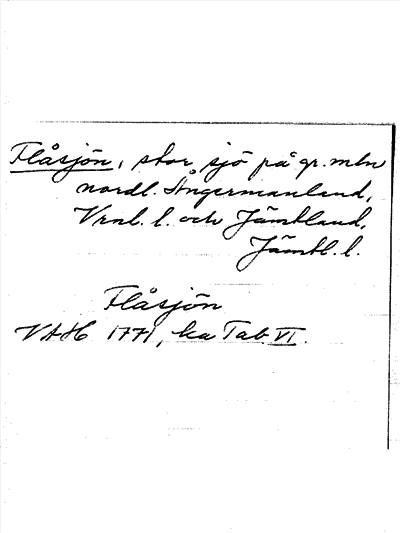 Flåsjön, stor sjö på gr. mln
nordl. Ångermanland,
Vrnl. l. och Jämtland,
Jämtl. l.
Flåsjön
VAH 1771, ka Tab VI.